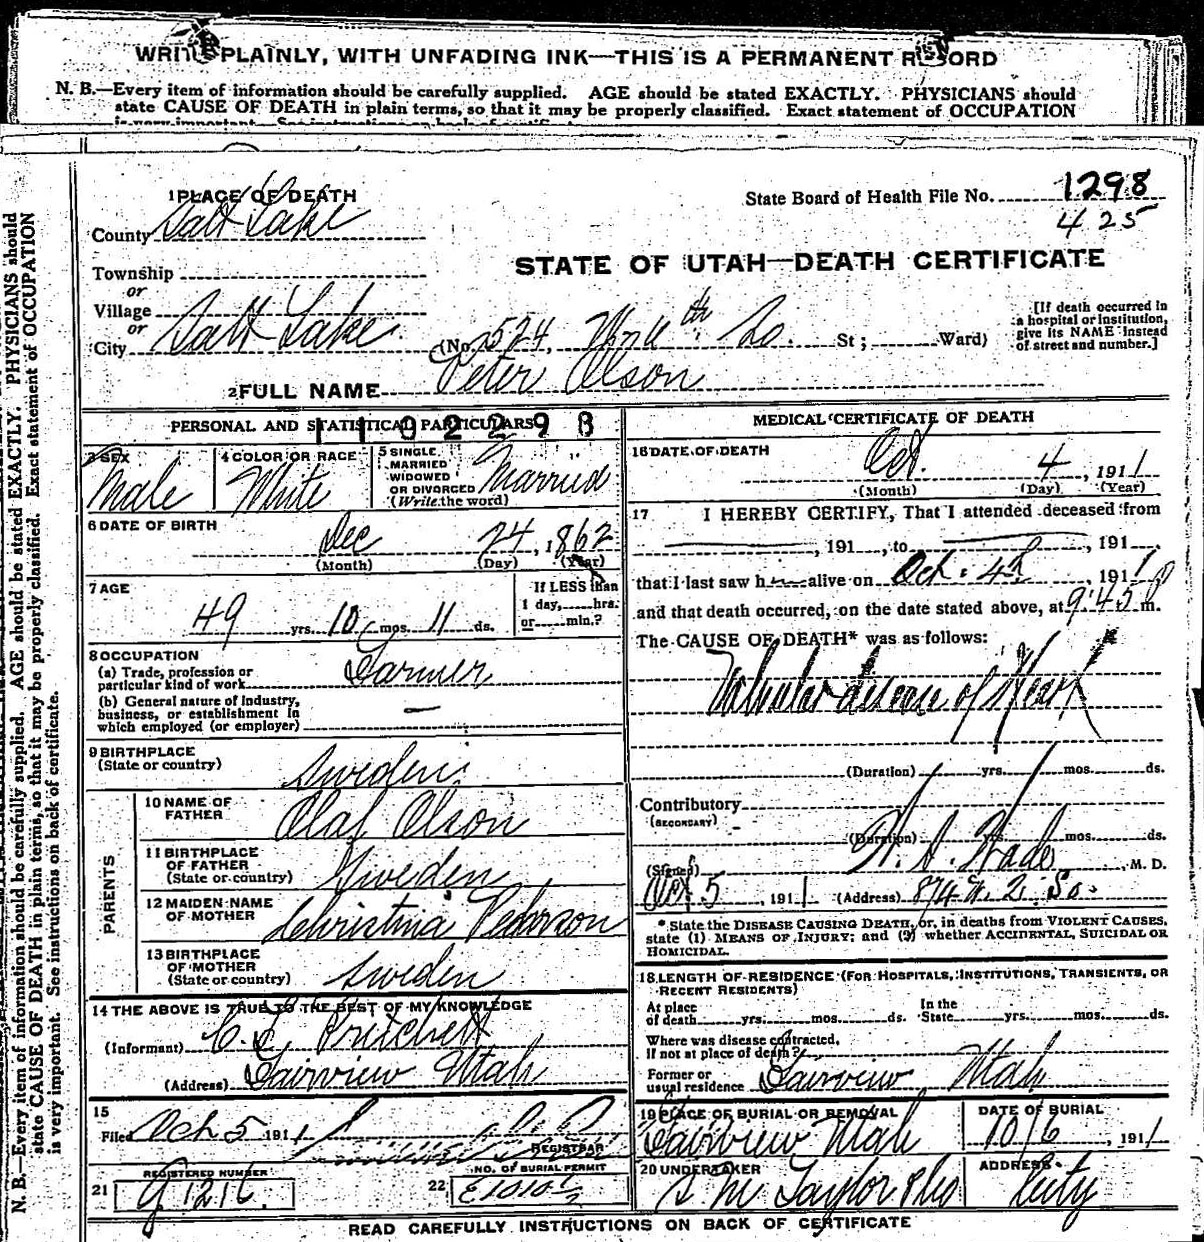 WRITE PLAINLY, WITH UNFADING INK—THIS IS A PERMANENT RECORD
N. B.—Every item of information should be carefully supplied. AGE should be stated EXACTLY. PHYSICIANS should
state CAUSE OF DEATH in plain terms, so that it may be properly classified. Exact statement of OCCUPATION
is very important. See instructions on back of certificate.
N. B.—Every item of information should be carefully supplied. AGE should be stated EXACTLY. PHYSICIANS should
state CAUSE OF DEATH in plain terms, so that it may be properly classified. Exact statement of OCCUPATION
is very important. See instructions on back of certificate.
1 PLACE OF DEATH
State Board of Health File No. 1298
425
County Salt Lake
STATE OF UTAH—DEATH CERTIFICATE
Township
or
Village
or
City Salt Lake (No. 524, W 4th So. St; Ward)
[If death occurred in
a hospital or institution,
give its NAME instead
of street and number.]
2 FULL NAME Peter Olson
PERSONAL AND STATISTICAL PARTICULARS
3 SEX Male
4 COLOR OR RACE White
5 SINGLE
MARRIED
WIDOWED
OR DIVORCED
(Write the word) Married
6 DATE OF BIRTH
Dec 24, 1862
(Month) (Day) (Year)
7 AGE
49 yrs. 10 mos. 11 ds.
If LESS than
1 day, hrs.
or min.?
8 OCCUPATION
(a) Trade, profession or
particular kind of work Farmer
(b) General nature of industry,
business, or establishment in
which employed (or employer) —
9 BIRTHPLACE
(State or country) Sweden
PARENTS
10 NAME OF
FATHER Olaf Olson
11 BIRTHPLACE
OF FATHER
(State or country) Sweden
12 MAIDEN NAME
OF MOTHER Christina Pederson
13 BIRTHPLACE
OF MOTHER
(State or country) Sweden
14 THE ABOVE IS TRUE TO THE BEST OF MY KNOWLEDGE
(Informant) C. L. Pritchett
(Address) Fairview Utah
15
Filed Oct 5 1911
REGISTRAR
REGISTERED NUMBER
21
NO. OF BURIAL PERMIT
22
MEDICAL CERTIFICATE OF DEATH
16 DATE OF DEATH
Oct. 4, 1911
(Month) (Day) (Year)
17 I HEREBY CERTIFY, That I attended deceased from
, 191 , to , 191
that I last saw h alive on Oct. 4th, 1911
and that death occurred, on the date stated above, at 9:45 P m.
The CAUSE OF DEATH* was as follows:
Valvular disease of Heart
(Duration) yrs. mos. ds.
Contributory
(SECONDARY)
(Duration) yrs. mos. ds.
(Signed) , M. D.
Oct 5, 1911 (Address) 874 W. 2. So.
* State the DISEASE CAUSING DEATH, or, in deaths from VIOLENT CAUSES,
state (1) MEANS OF INJURY; and (2) whether ACCIDENTAL, SUICIDAL OR
HOMICIDAL.
18 LENGTH OF RESIDENCE (FOR HOSPITALS, INSTITUTIONS, TRANSIENTS, OR
RECENT RESIDENTS)
At place
of death yrs. mos. ds.
In the
State yrs. mos. ds.
Where was disease contracted,
if not at place of death?
Former or
usual residence Fairview Utah
19 PLACE OF BURIAL OR REMOVAL
Fairview Utah
DATE OF BURIAL
10/6, 1911
20 UNDERTAKER
S. M. Taylor
ADDRESS
City
READ CAREFULLY INSTRUCTIONS ON BACK OF CERTIFICATE